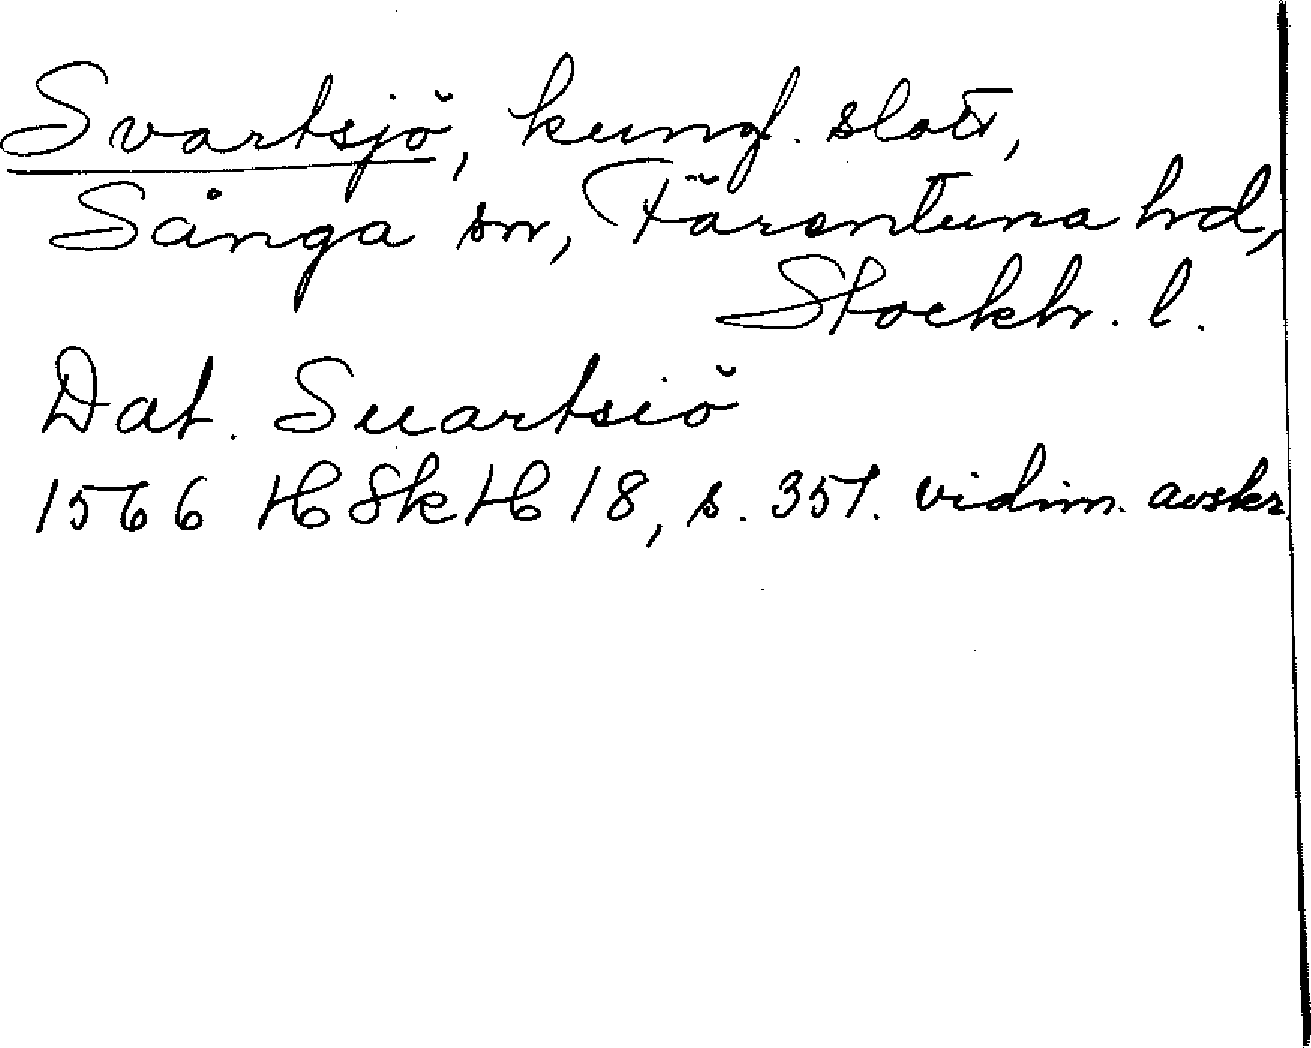 Svartsjö, kungl. slott,
Sånga sn, Färentuna hd,
Stockh. l.
Dat. Suartsiö
1566 HSkH 18, s. 351. vidim. avskr.